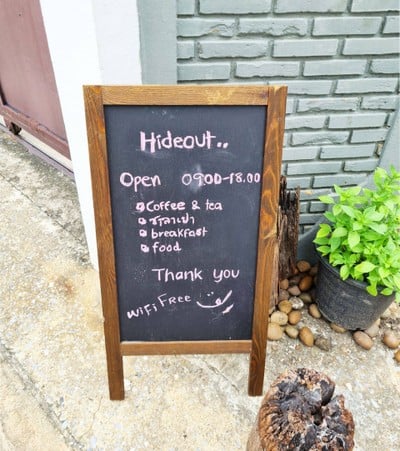 Hideout..
Open 09.00-18.00
Coffee & tea
ซาลาเปา
breakfast
food
Thank you
WiFi Free